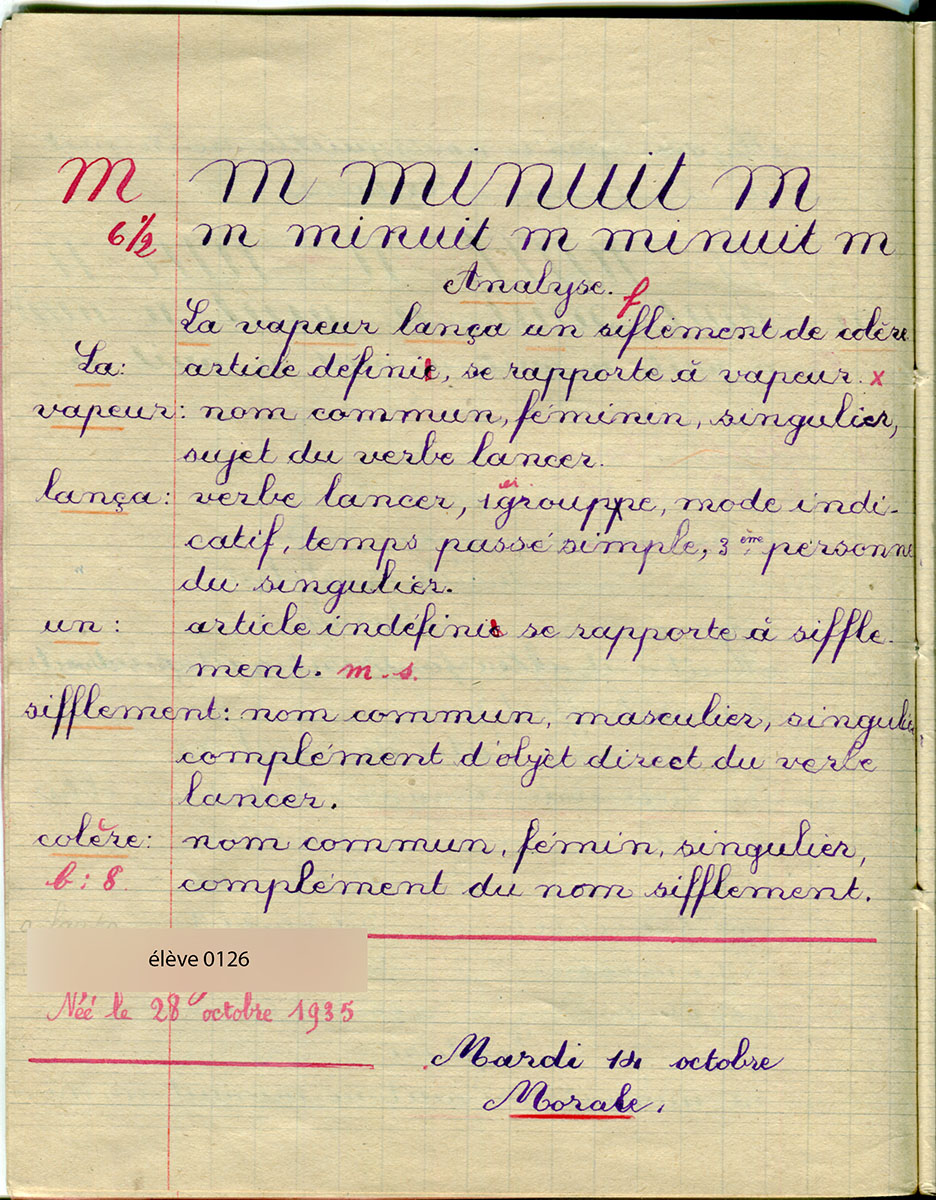 m m minuit m
6 1/2 m minuit m minuit m
Analyse.
f
La vapeur lança un siflement de colère
La: article définie, se rapporte à vapeur. x
vapeur: nom commun, féminin, singulier,
sujet du verbe lancer.
lança: verbe lancer, 1er grouppe, mode indi-
catif, temps passé simple, 3ème personne
du singulier.
un: article indéfinie se rapporte à siffle-
ment. m.s.
sifflement: nom commun, masculier, singulier
complément d'objet direct du verbe
lancer.
colère: nom commun, fémin, singulier,
b: 8. complément du nom sifflement.
élève 0126
Née le 28 octobre 1935
Mardi 14 octobre
Morale.